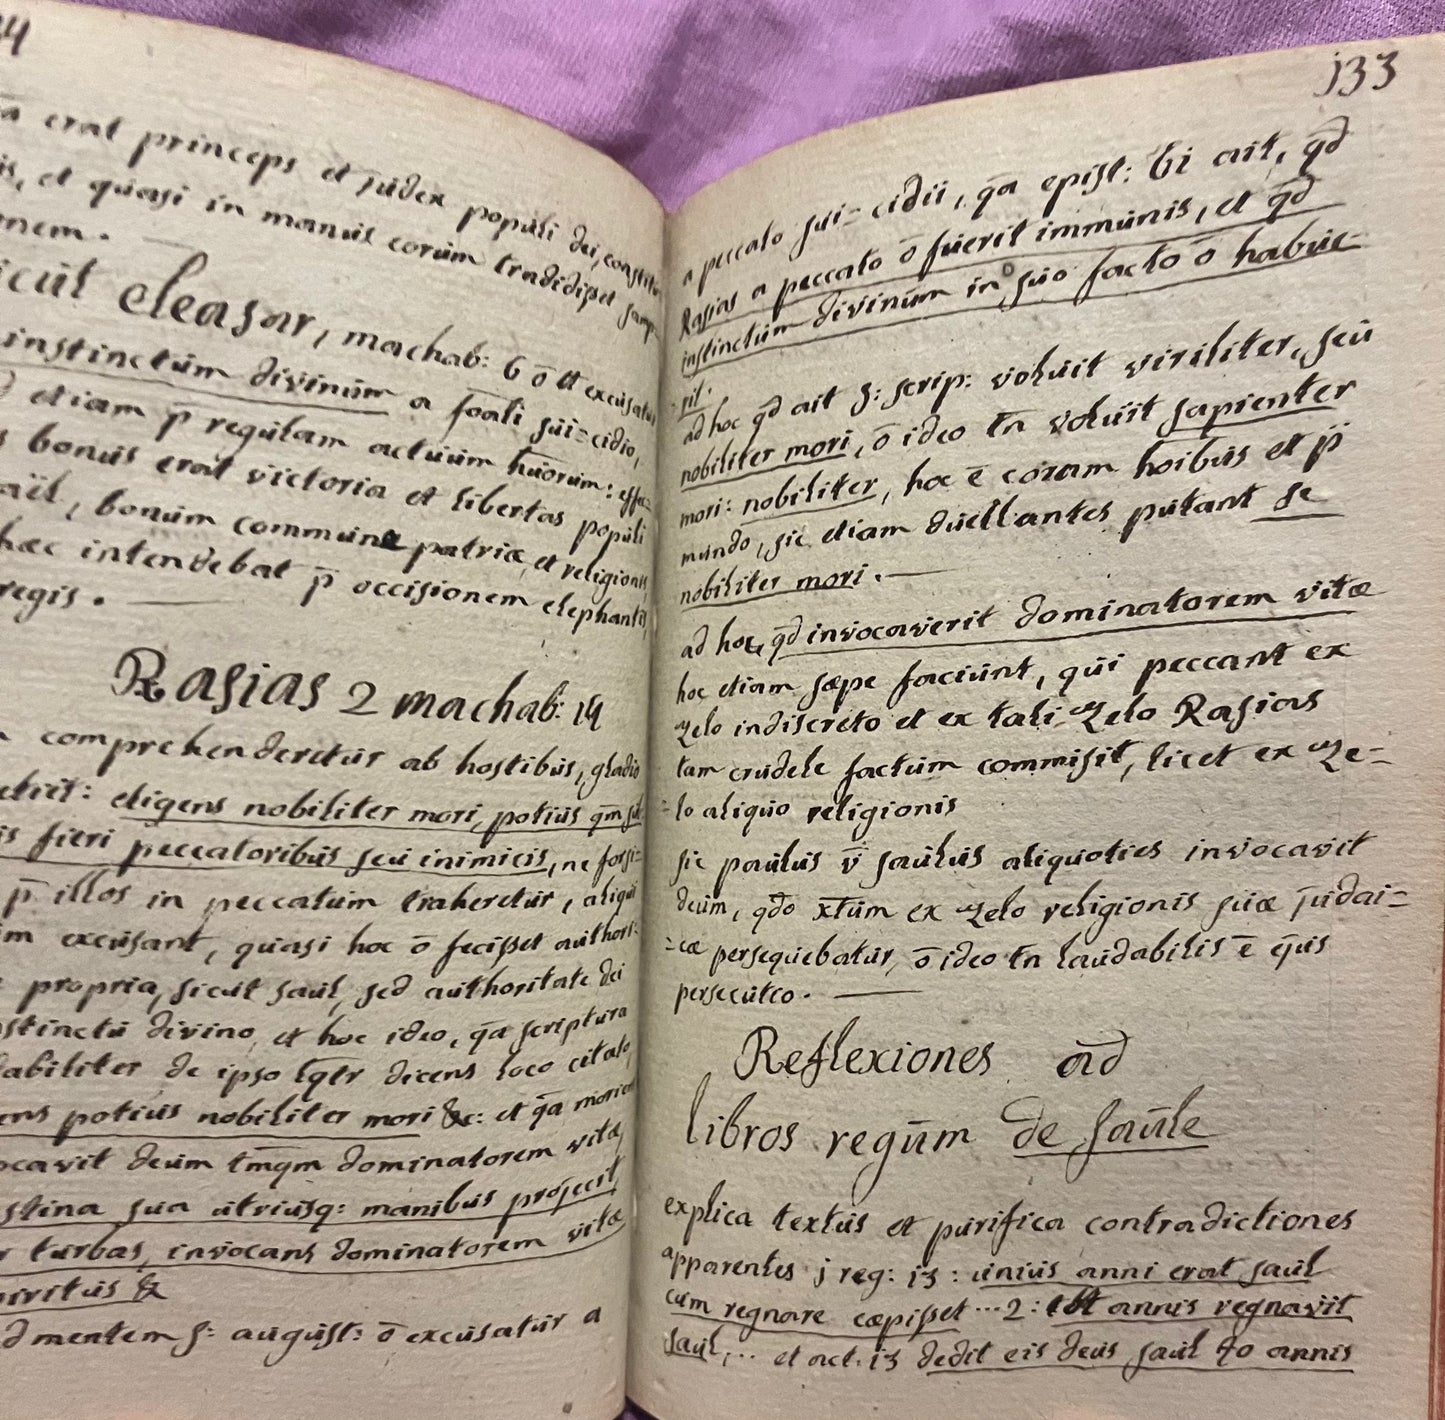 34
a erat princeps et judex populi dei, constitu
is, et quasi in manus eorum tradidisset samp
onem.
icut eleasar, machab: 6 ō tt excusatur
instinctum divinum a foali sui=cidio,
etiam p̄ regulam actuum huōrum: effe=
s bonus erat victoria et libertas populi
aël, bonum commune patriæ, et religionis
hæc intendebat p̄ occisionem elephantis
regis.
Rasias 2 machab: 14
comprehenderetur ab hostibus, gladio
etiit: eligens nobiliter mori, potius qm̄ sub
is fieri peccatoribus seu inimicis, ne forsi=
p̄ illos in peccatum traheretur, aliqui
im excusant, quasi hoc ō fecisset authori:
propria, sicut saul, sed authoritate dei
stinctu divino, et hoc ideo, qa scriptura
dabiliter de ipso lqtr dicens loco citato,
ens potius nobiliter mori &c: et qa morien
ocavit deum tmqm dominatorem vitæ,
stina sua utriusq: manibus projecit
r turbas, invocans dominatorem vitæ
piritus &
d mentem S: august: ō excusatur a
133
a peccato sui=cidii, qa epist: 61 ait, qd
Rasias a peccato ō fuerit immunis, et qd
instinctum divinum in suo facto ō habue=
=rit.
ad hoc qd ait S: scrip: voluit viriliter, seu
nobiliter mori, ō ideo tn voluit sapienter
mori: nobiliter, hoc ē coram hoibus et p̄
mundo, sic etiam duellantes putant se
nobiliter mori.
ad hoc, qd invocaverit dominatorem vitæ
hoc etiam sæpe faciunt, qui peccant ex
zelo indiscreto et ex tali zelo Rasias
tam crudele factum commisit, licet ex ze=
=lo aliquo religionis
sic paulus v̄ saulus aliquoties invocavit
deum, qdo xtum ex zelo religionis suæ judai=
=cæ persequebatur, ō ideo tn laudabilis ē ejus
persecutio.
Reflexiones ad
libros regum de saule
explica textus et purifica contradictiones
apparentes j reg: 13: unius anni erat saul
cum regnare cœpisset ... 2: tt annis regnavit
saul,... et act. 13 dedit eis deus saul 40 annis